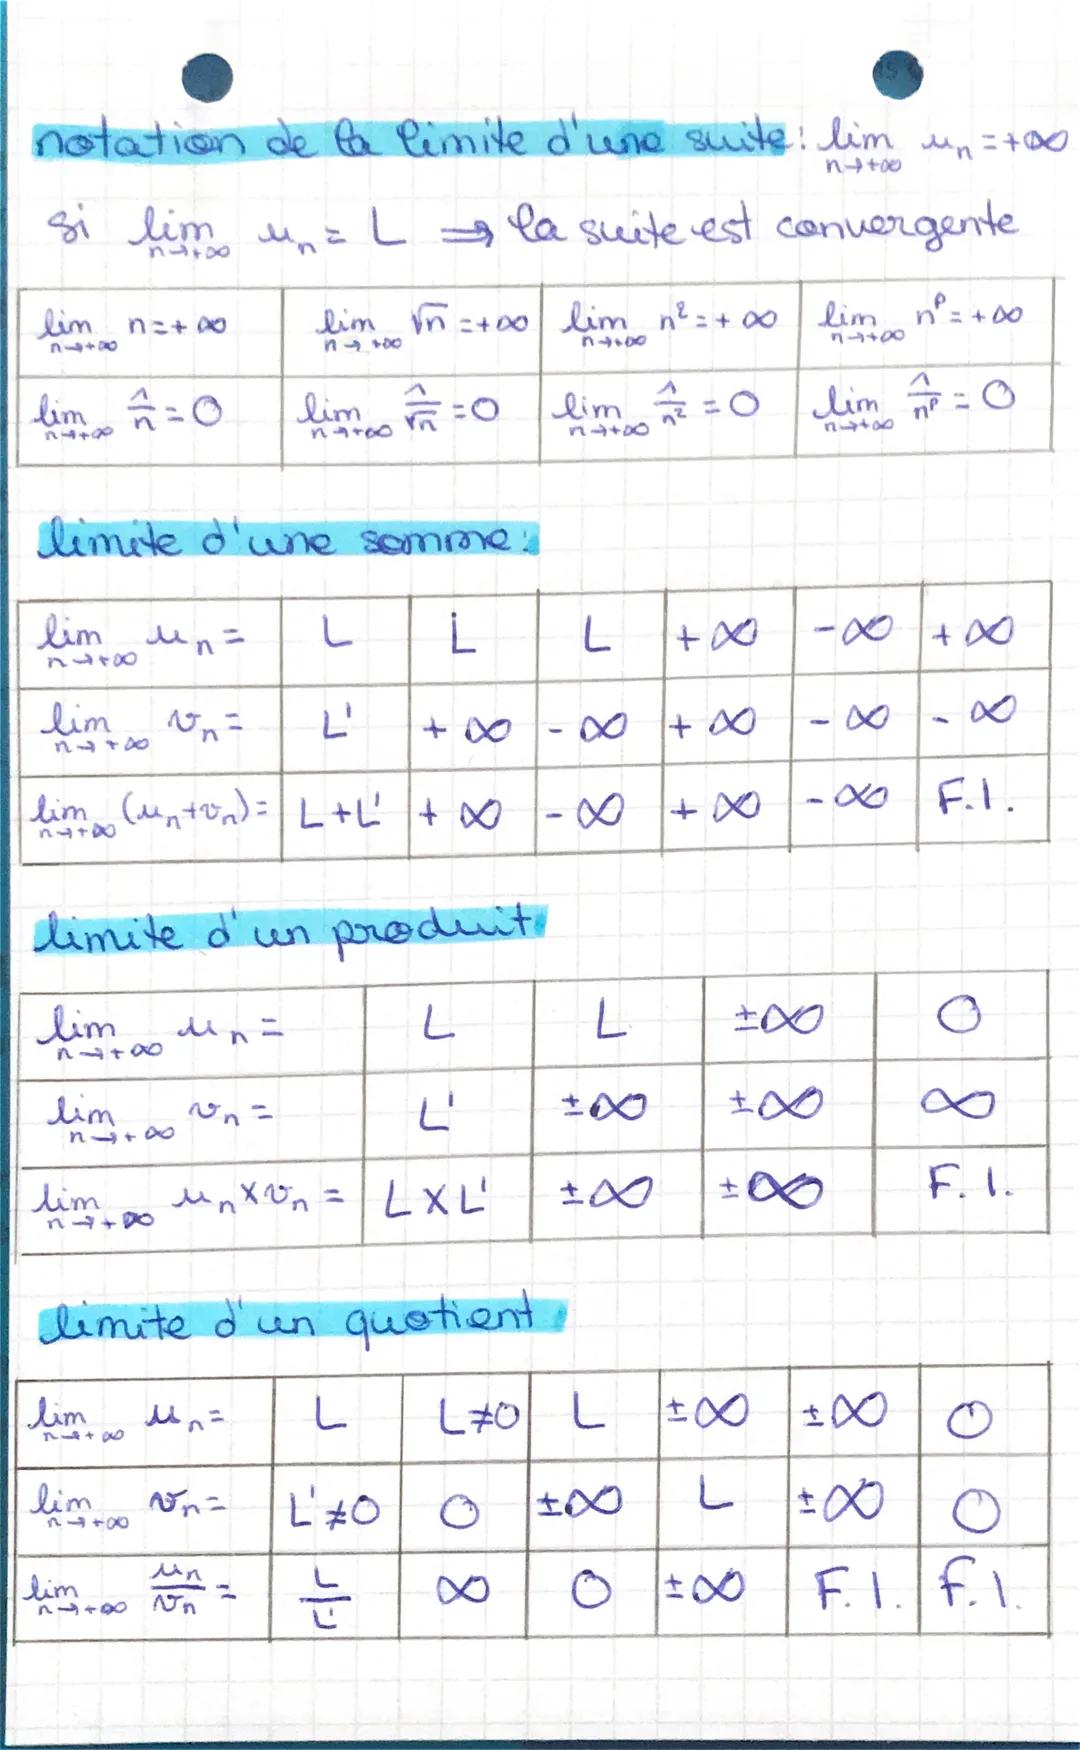 notation de la limite d'une suite : lim n→+∞ uₙ = +∞
si lim n→+∞ uₙ = L ⇒ la suite est convergente
lim n→+∞ n = +∞ | lim n→+∞ √n = +∞ | lim n→+∞ n² = +∞ | lim n→+∞ nᵖ = +∞
lim n→+∞ 1/n = 0 | lim n→+∞ 1/√n = 0 | lim n→+∞ 1/n² = 0 | lim n→+∞ 1/nᵖ = 0
limite d'une somme :
lim n→+∞ uₙ = | L | L | L | +∞ | -∞ | +∞
lim n→+∞ vₙ = | L' | +∞ | -∞ | +∞ | -∞ | -∞
lim n→+∞ (uₙ+vₙ) = | L+L' | +∞ | -∞ | +∞ | -∞ | F.I.
limite d'un produit
lim n→+∞ uₙ = | L | L | ±∞ | 0
lim n→+∞ vₙ = | L' | ±∞ | ±∞ | ∞
lim n→+∞ uₙ×vₙ = | L×L' | ±∞ | ±∞ | F.I.
limite d'un quotient
lim n→+∞ uₙ = | L | L≠0 | L | ±∞ | ±∞ | 0
lim n→+∞ vₙ = | L'≠0 | 0 | ±∞ | L | ±∞ | 0
lim n→+∞ uₙ/vₙ = | L/L' | ∞ | 0 | ±∞ | F.I. | F.I.